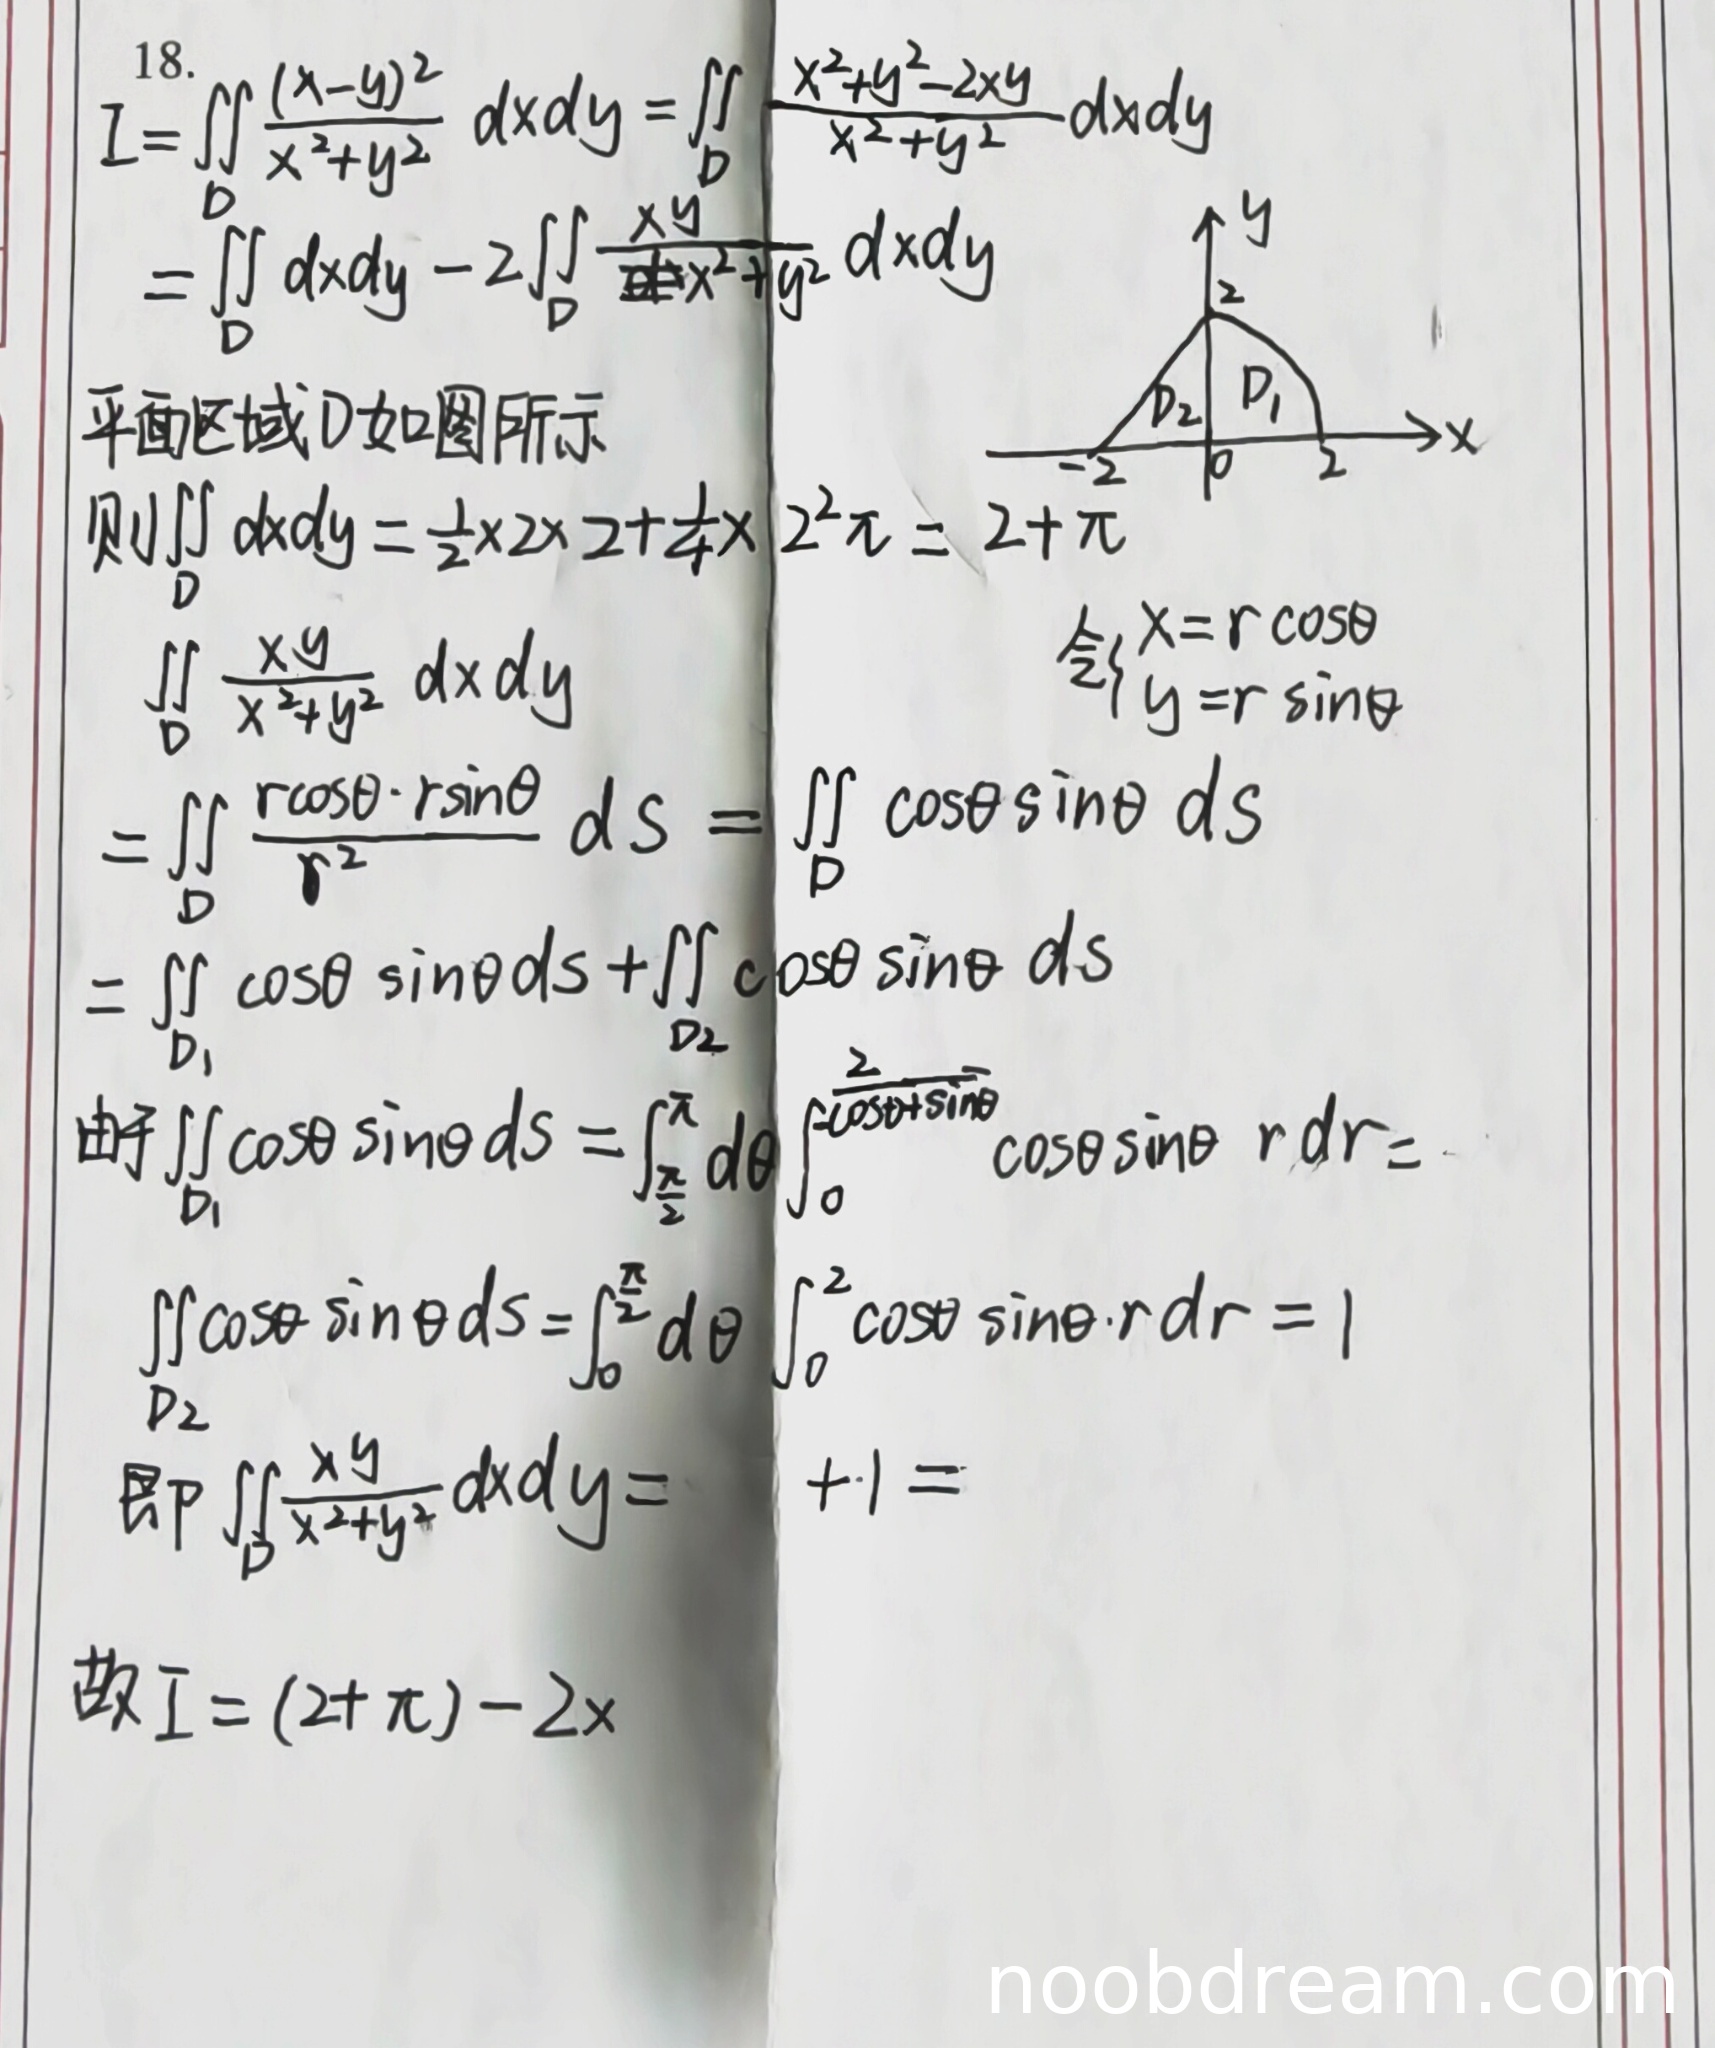 18.
I = ∬_D (x-y)²/(x²+y²) dxdy = ∬_D (x²+y²-2xy)/(x²+y²) dxdy
= ∬_D dxdy - 2∬_D xy/(x²+y²) dxdy
y
2
D₂ D₁
-2 0 2 x
平面区域D如图所示
则∬_D dxdy = 1/2 × 2 × 2 + 1/4 × 2²π = 2+π
∬_D xy/(x²+y²) dxdy 令{ x = r cosθ
y = r sinθ
= ∬_D (rcosθ·rsinθ)/r² ds = ∬_D cosθ sinθ ds
= ∬_D₁ cosθ sinθ ds + ∬_D₂ cosθ sinθ ds
由于∬_D₁ cosθ sinθ ds = ∫_{π/2}^{π} dθ ∫_0^{2/(-cosθ+sinθ)} cosθ sinθ r dr =
∬_D₂ cosθ sinθ ds = ∫_0^{π/2} dθ ∫_0^2 cosθ sinθ·r dr = 1
即∬_D xy/(x²+y²) dxdy = +1 =
故 I = (2+π) - 2×
noobdream.com